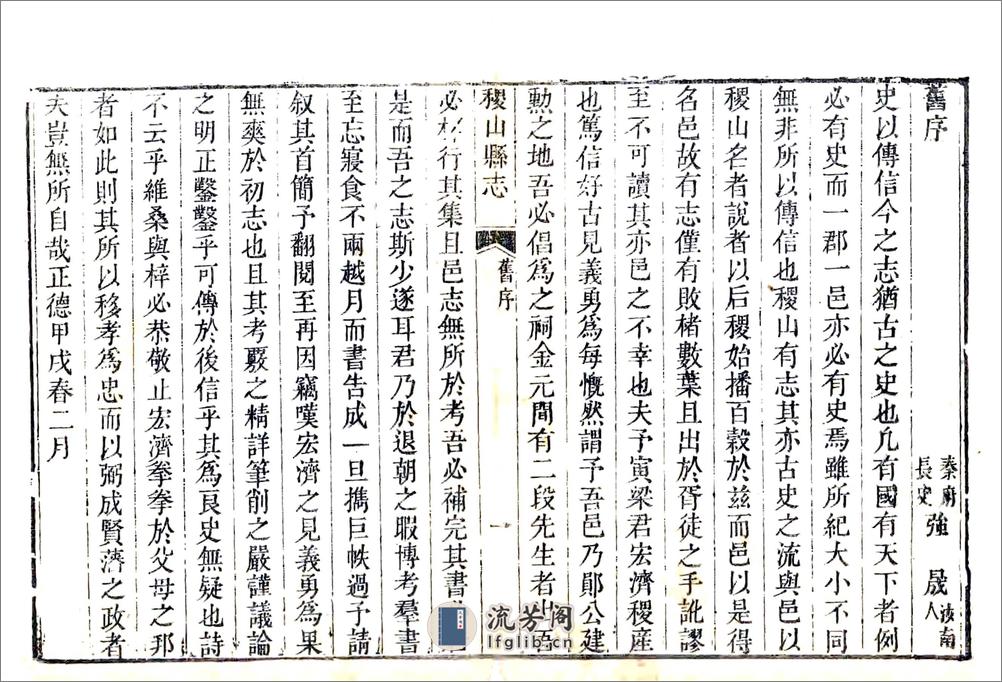 舊序
秦府長史強晟汝南人
史以傳信今之志猶古之史也凡有國有天下者例
必有史而一郡一邑亦必有史焉雖所紀大小不同
無非所以傳信也稷山有志其亦古史之流與邑以
稷山名者說者以后稷始播百穀於茲而邑以是得
名邑故有志僅有敗楮數葉且出於胥徒之手訛謬
至不可讀其亦邑之不幸也夫予寅梁君宏濟稷產
也篤信好古見義勇為每慨然謂予吾邑乃鄖公建
勲之地吾必倡為之祠金元間有二段先生者
稷山縣志
舊序
一
必梓行其集且邑志無所於考吾必補完其書
是而吾之志斯少遂耳君乃於退朝之暇博考羣書
至忘寢食不兩越月而書告成一旦攜巨帙過予請
叙其首簡予翻閱至再因竊嘆宏濟之見義勇為果
無爽於初志也且其考覈之精詳筆削之嚴謹議論
之明正鑿鑿乎可傳於後信乎其為良史無疑也詩
不云乎維桑與梓必恭敬止宏濟拳拳於父母之邦
者如此則其所以移孝為忠而以弼成賢濟之政者
夫豈無所自哉正德甲戌春二月
流芳閣
lfglib.cn